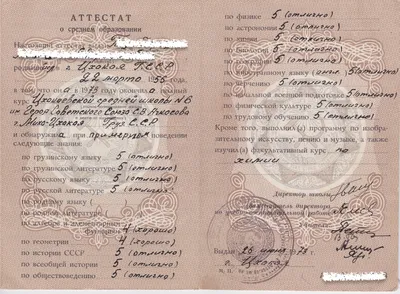 АТТЕСТАТ
о среднем образовании
Настоящий
в г. Цхакая ГССР
22 марта 56 года,
в том, что он в 1973 году окончил полный
курс Цхакаевской средней школы N6
им. Героя Советского Союза
г. Миха-Цхакая ССР
и обнаружил при примерном поведении
следующие знания:
по грузинскому языку 5 (отлично)
по грузинской литературе 5 (отлично)
по русскому языку 5 (отлично)
по русской литературе 5 (отлично)
по родному языку ( )
по родной литературе
по алгебре и элементарным
функциям 4 (хорошо)
по геометрии 4 (хорошо)
по истории СССР 5 (отлично)
по всеобщей истории 5 (отлично)
по обществоведению 5 (отлично)
по физике 5 (отлично)
по астрономии 5 (отлично)
по химии 5 (отлично)
по биологии 5 (отлично)
по географии 5 (отлично)
по иностранному языку (англ.) 5 (отлично)
5 (отлично)
по физической культуре 5 (отлично)
5 (отлично)
Кроме того, выполнил программу по изобрази-
тельному искусству, пению и музыке, а также
изучил факультативный курс по
химии
Директор школы
Заместитель директора
по учебно-воспитательной работе
Учителя
Выдан 26 июня 1973 г.
г. Цхакая
М. П.